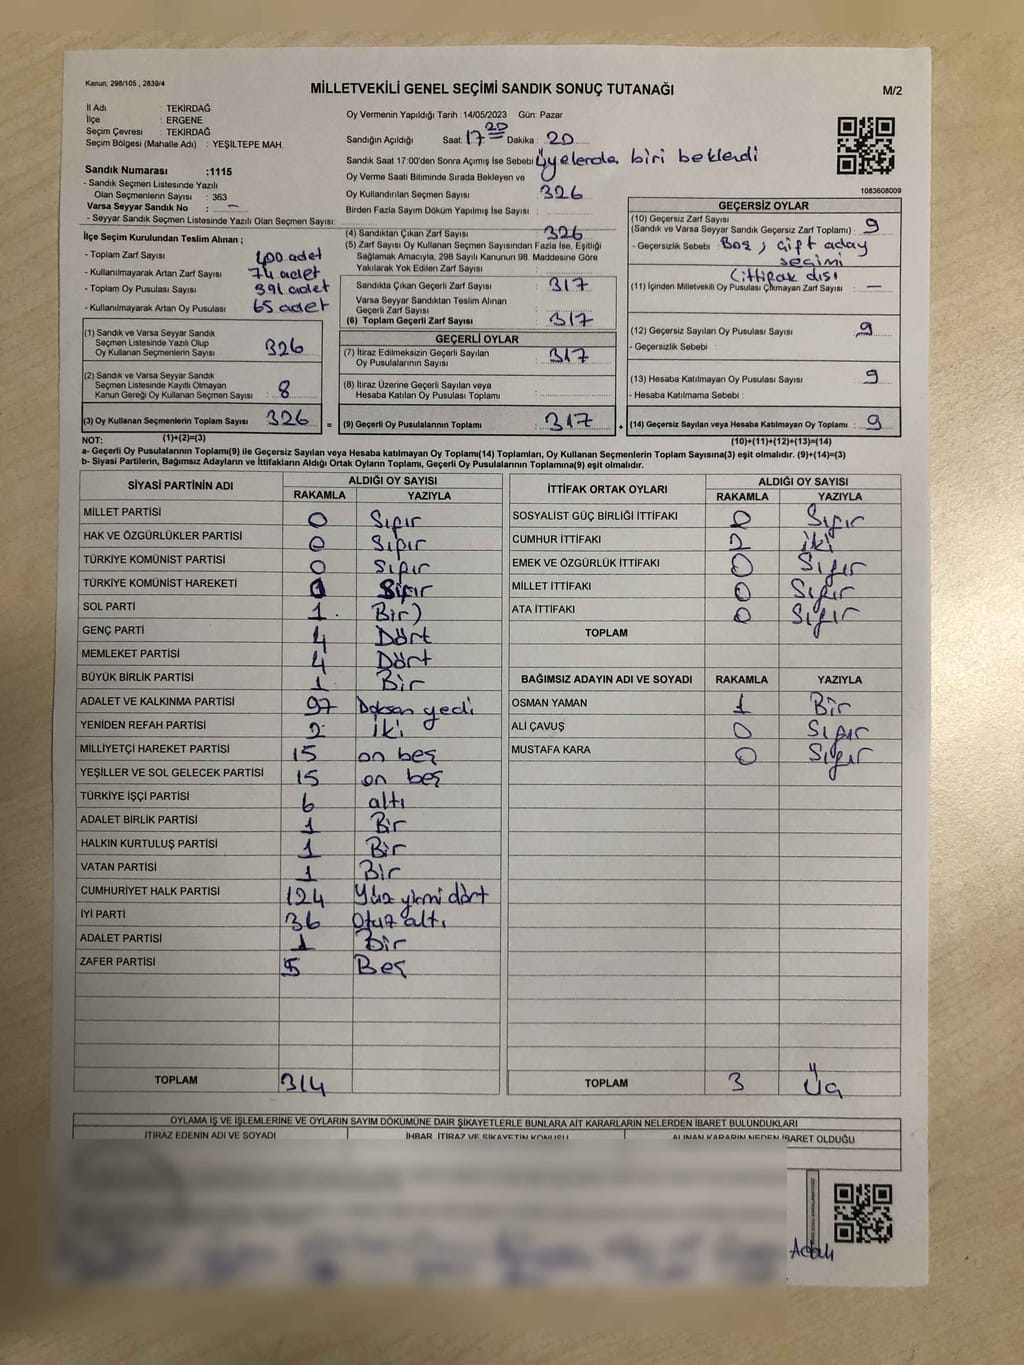 Kanun: 298/105 , 2839/4
MİLLETVEKİLİ GENEL SEÇİMİ SANDIK SONUÇ TUTANAĞI
M/2
İl Adı : TEKİRDAĞ
İlçe : ERGENE
Seçim Çevresi : TEKİRDAĞ
Seçim Bölgesi (Mahalle Adı) : YEŞİLTEPE MAH.
Sandık Numarası :1115
- Sandık Seçmen Listesinde Yazılı
Olan Seçmenlerin Sayısı : 363
Varsa Seyyar Sandık No : —
- Seyyar Sandık Seçmen Listesinde Yazılı Olan Seçmen Sayısı:
Oy Vermenin Yapıldığı Tarih :14/05/2023 Gün: Pazar
Sandığın Açıldığı Saat: 17 20 Dakika : 20
Sandık Saat 17:00'den Sonra Açımış İse Sebebi Üyelerda biri beklendi
Oy Verme Saati Bitiminde Sırada Bekleyen ve
Oy Kullandırılan Seçmen Sayısı : 326
Birden Fazla Sayım Döküm Yapılmış İse Sayısı :
1083608009
İlçe Seçim Kurulundan Teslim Alınan ;
- Toplam Zarf Sayısı : 400 adet
- Kullanılmayarak Artan Zarf Sayısı : 74 adet
- Toplam Oy Pusulası Sayısı : 391 adet
- Kullanılmayarak Artan Oy Pusulası : 65 adet
(1) Sandık ve Varsa Seyyar Sandık
Seçmen Listesinde Yazılı Olup
Oy Kullanan Seçmenlerin Sayısı : 326
(2) Sandık ve Varsa Seyyar Sandık
Seçmen Listesinde Kayıtlı Olmayan
Kanun Gereği Oy Kullanan Seçmen Sayısı : 8
(3) Oy Kullanan Seçmenlerin Toplam Sayısı : 326 =
(4) Sandıktan Çıkan Zarf Sayısı : 326
(5) Zarf Sayısı Oy Kullanan Seçmen Sayısından Fazla İse, Eşitliği
Sağlamak Amacıyla, 298 Sayılı Kanunun 98. Maddesine Göre
Yakılarak Yok Edilen Zarf Sayısı :
Sandıkta Çıkan Geçerli Zarf Sayısı : 317
Varsa Seyyar Sandıktan Teslim Alınan
Geçerli Zarf Sayısı :
(6) Toplam Geçerli Zarf Sayısı : 317
GEÇERLİ OYLAR
(7) İtiraz Edilmeksizin Geçerli Sayılan
Oy Pusulalarının Sayısı : 317
(8) İtiraz Üzerine Geçerli Sayılan veya
Hesaba Katılan Oy Pusulası Toplamı :
(9) Geçerli Oy Pusulalarının Toplamı : 317 +
GEÇERSİZ OYLAR
(10) Geçersiz Zarf Sayısı
(Sandık ve Varsa Seyyar Sandık Geçersiz Zarf Toplamı) : 9
- Geçersizlik Sebebi : Boş, Çift aday
seçimi
(ittifak dışı
(11) İçinden Milletvekili Oy Pusulası Çıkmayan Zarf Sayısı : —
(12) Geçersiz Sayılan Oy Pusulası Sayısı : 9
- Geçersizlik Sebebi :
(13) Hesaba Katılmayan Oy Pusulası Sayısı : 9
- Hesaba Katılmama Sebebi :
(14) Geçersiz Sayılan veya Hesaba Katılmayan Oy Toplamı : 9
NOT: (1)+(2)=(3) (10)+(11)+(12)+(13)=(14)
a- Geçerli Oy Pusulalarının Toplamı(9) ile Geçersiz Sayılan veya Hesaba katılmayan Oy Toplamı(14) Toplamları, Oy Kullanan Seçmenlerin Toplam Sayısına(3) eşit olmalıdır. (9)+(14)=(3)
b- Siyasi Partilerin, Bağımsız Adayların ve İttifakların Aldığı Ortak Oyların Toplamı, Geçerli Oy Pusulalarının Toplamına(9) eşit olmalıdır.
SİYASİ PARTİNİN ADI ALDIĞI OY SAYISI
RAKAMLA YAZIYLA
MİLLET PARTİSİ 0 Sıfır
HAK VE ÖZGÜRLÜKLER PARTİSİ 0 Sıfır
TÜRKİYE KOMÜNİST PARTİSİ 0 Sıfır
TÜRKİYE KOMÜNİST HAREKETİ 0 Sıfır
SOL PARTİ 1 Bir)
GENÇ PARTİ 4 Dört
MEMLEKET PARTİSİ 4 Dört
BÜYÜK BİRLİK PARTİSİ 1 Bir
ADALET VE KALKINMA PARTİSİ 97 Doksan yedi
YENİDEN REFAH PARTİSİ 2 iki
MİLLİYETÇİ HAREKET PARTİSİ 15 on beş
YEŞİLLER VE SOL GELECEK PARTİSİ 15 on beş
TÜRKİYE İŞÇİ PARTİSİ 6 altı
ADALET BİRLİK PARTİSİ 1 Bir
HALKIN KURTULUŞ PARTİSİ 1 Bir
VATAN PARTİSİ 1 Bir
CUMHURİYET HALK PARTİSİ 124 Yüz yirmi dört
İYİ PARTİ 36 Otuz altı
ADALET PARTİSİ 1 Bir
ZAFER PARTİSİ 5 Beş
TOPLAM 314
İTTİFAK ORTAK OYLARI ALDIĞI OY SAYISI
RAKAMLA YAZIYLA
SOSYALİST GÜÇ BİRLİĞİ İTTİFAKI 0 Sıfır
CUMHUR İTTİFAKI 2 iki
EMEK VE ÖZGÜRLÜK İTTİFAKI 0 Sıfır
MİLLET İTTİFAKI 0 Sıfır
ATA İTTİFAKI 0 Sıfır
TOPLAM
BAĞIMSIZ ADAYIN ADI VE SOYADI RAKAMLA YAZIYLA
OSMAN YAMAN 1 Bir
ALİ ÇAVUŞ 0 Sıfır
MUSTAFA KARA 0 Sıfır
TOPLAM 3 Üç
OYLAMA İŞ VE İŞLEMLERİNE VE OYLARIN SAYIM DÖKÜMÜNE DAİR ŞİKAYETLERLE BUNLARA AİT KARARLARIN NELERDEN İBARET BULUNDUKLARI
İTİRAZ EDENİN ADI VE SOYADI İHBAR, İTİRAZ VE ŞİKAYETİN KONUSU ALINAN KARARIN NEDEN İBARET OLDUĞU